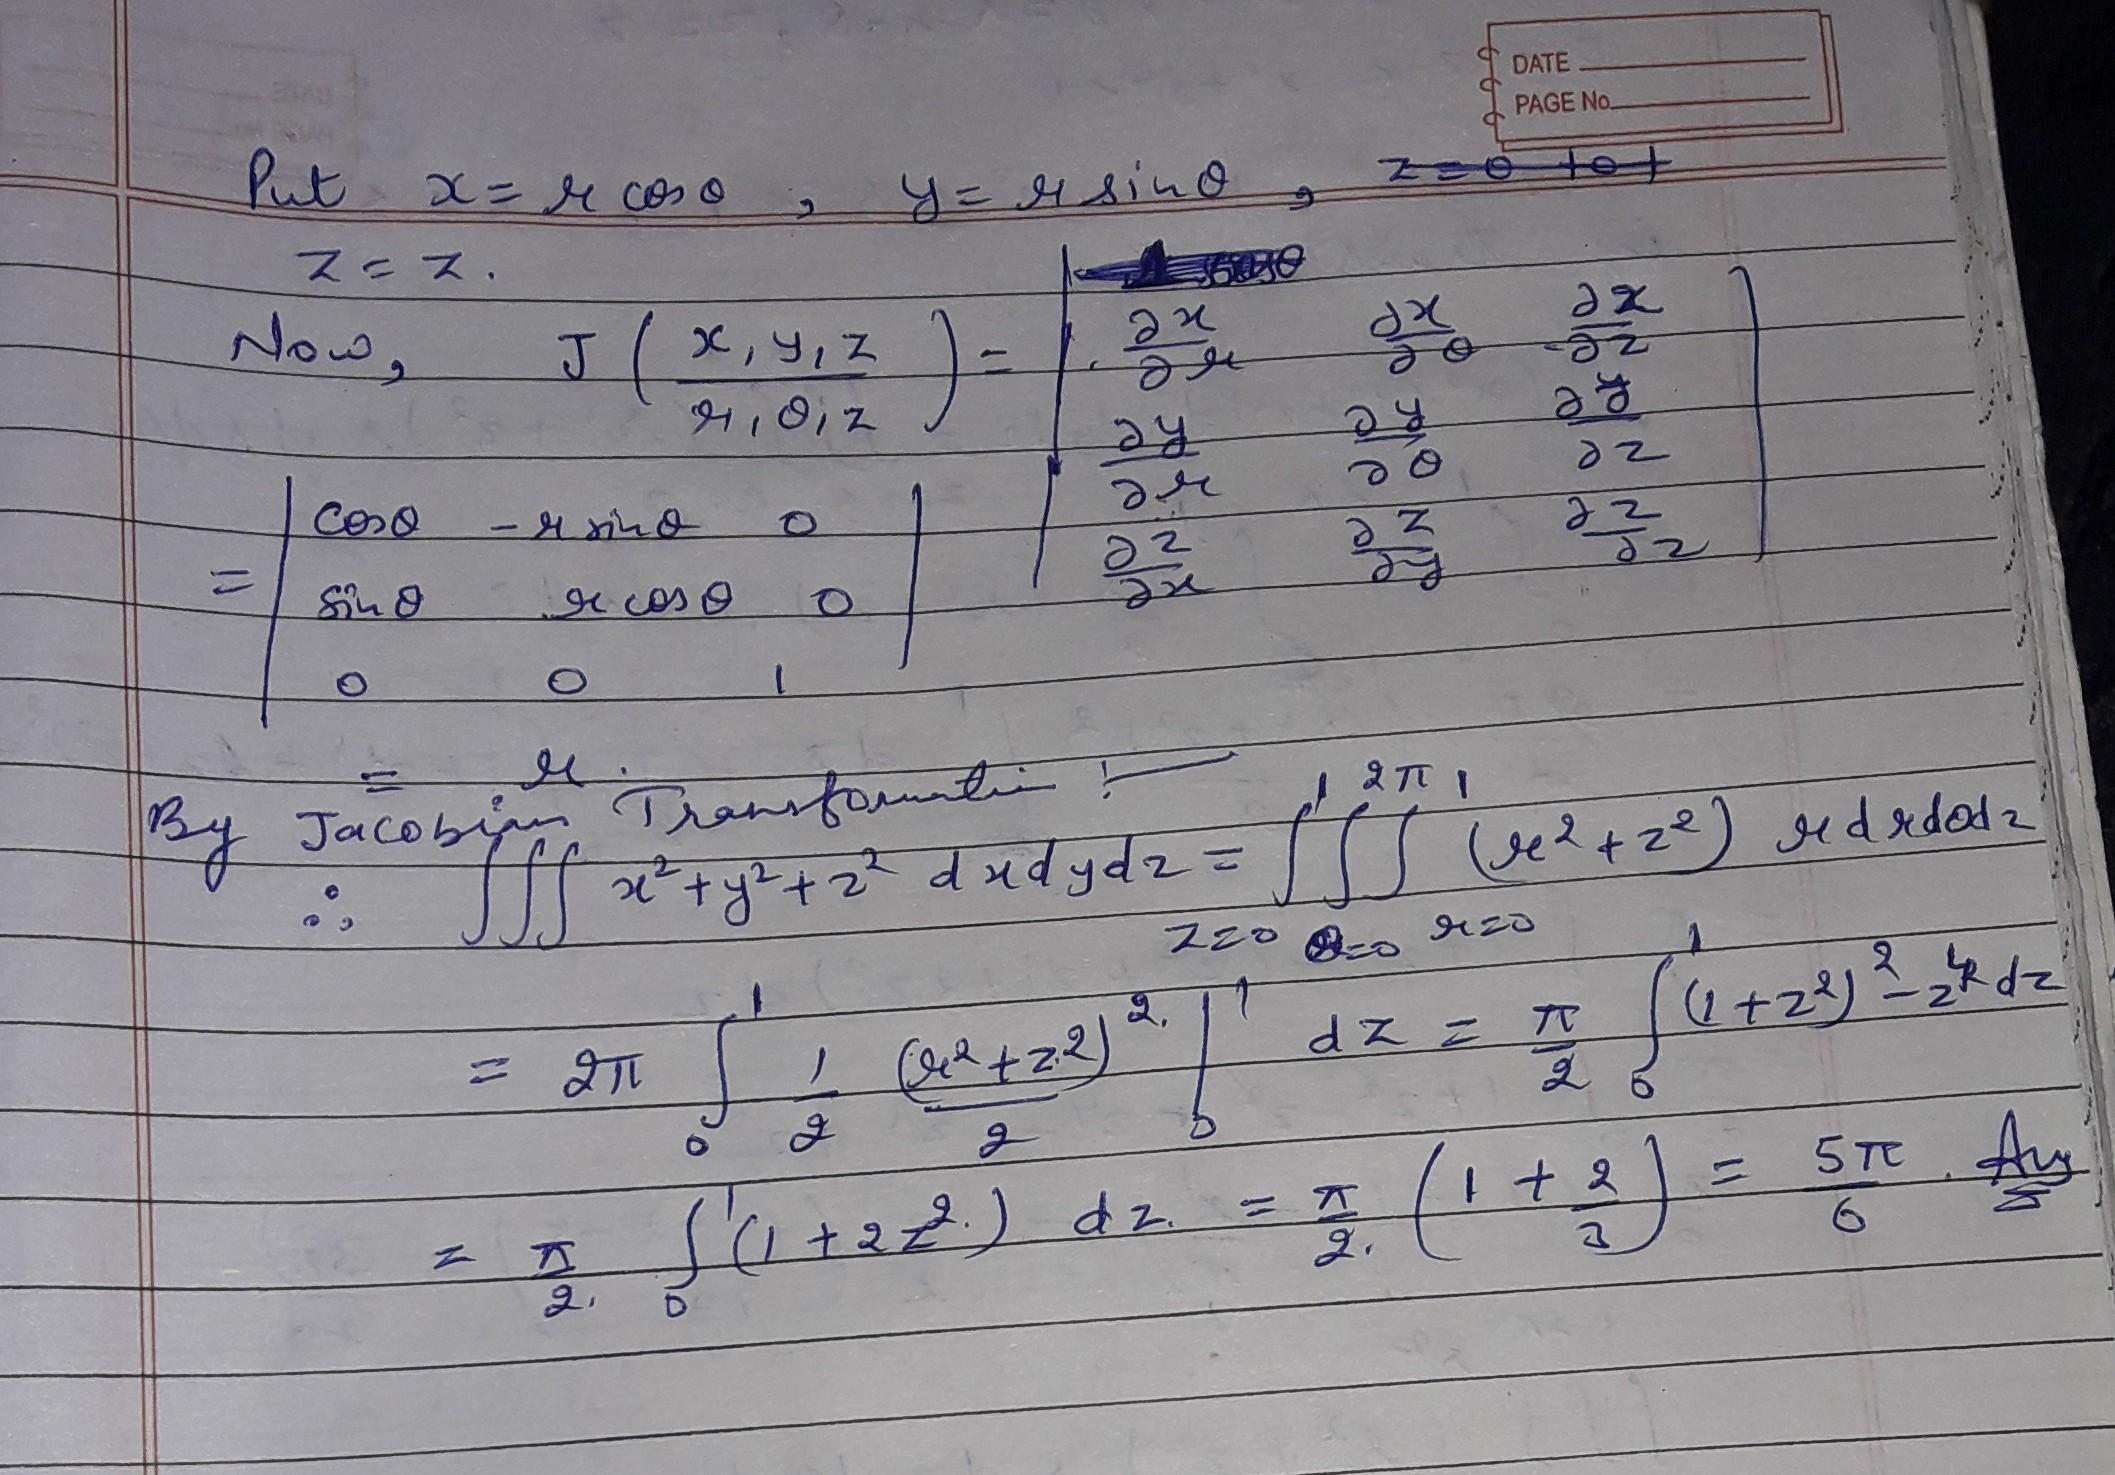 DATE
PAGE No.
Put x = r cosθ , y = r sinθ , z=0 to 1
z = z.
Now, J ( x, y, z / r, θ, z ) = | ∂x/∂r ∂x/∂θ ∂x/∂z |
| ∂y/∂r ∂y/∂θ ∂y/∂z |
| ∂z/∂x ∂z/∂y ∂z/∂z |
= | cosθ -r sinθ 0 |
| sinθ r cosθ 0 |
| 0 0 1 |
= r.
By Jacobian Transformation :—
∴ ∫∫∫ x²+y²+z² dxdydz = ∫_{z=0}^{1} ∫_{θ=0}^{2π} ∫_{r=0}^{1} (r²+z²) r dr dθ dz
= 2π ∫_0^1 1/2 (r²+z²)²/2 |_0^1 dz = π/2 ∫_0^1 (1+z²)² - z⁴ dz
= π/2. ∫_0^1 (1+2z².) dz. = π/2. (1 + 2/3) = 5π/6 . Ans